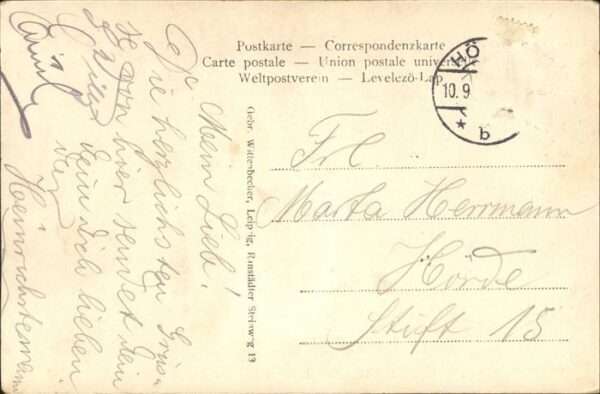 Postkarte — Correspondenzkarte
Carte postale — Union postale univers
Weltpostverein — Levelezö-Lap
HÖ
10. 9
* b
Gebr. Wittenbecker, Leipzig, Ranstädter Steinweg 13
Frl.
Marta Herrmann
Hörde
Stift 15
Mein Lieb!
Die herzlichsten Grüs-
se von hier sendet dein
dich lieben